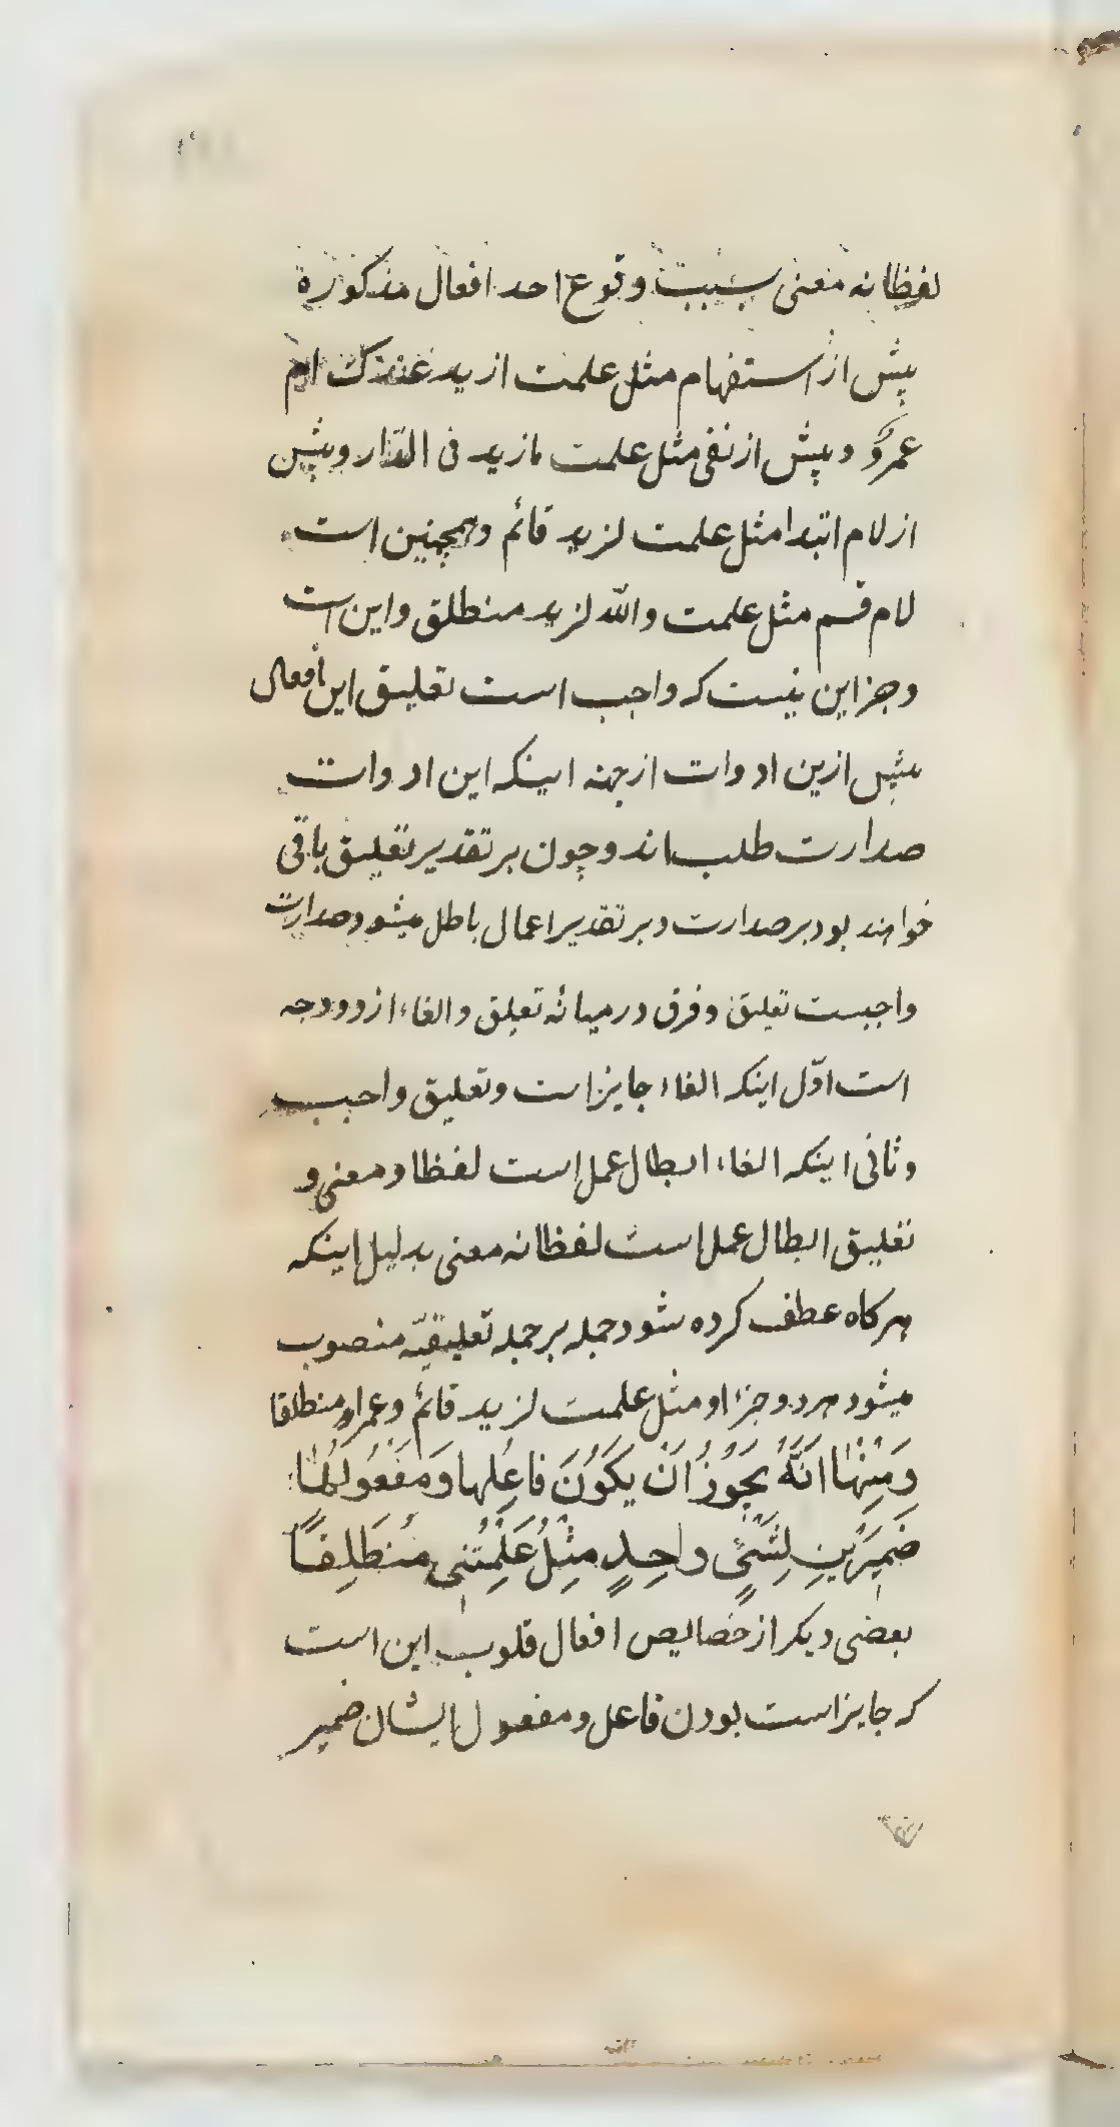 لفظا نه معنی بسبب وقوع احد افعال مذکوره
پیش از استفهام مثل علمت ازید عندک ام
عمرو و پیش از نفی مثل علمت مازید فی الدّار و پیش
از لام ابتدا مثل علمت لزید قائم و همچنین است
لام قسم مثل علمت والله لزید منطلق و این است
و جز این نیست که واجب است تعلیق این افعال
پیش ازین ادوات از جهته اینکه این ادوات
صدارت طلب‌اند و چون بر تقدیر تعلیق باقی
خواهند بود بر صدارت و بر تقدیر اعمال باطل میشود صدارت
واجبست تعلیق و فرق در میانه تعلیق و الغاء از دو وجه
است اوّل اینکه الغاء جایز است و تعلیق واجب
و ثانی اینکه الغاء ابطال عمل است لفظا و معنی و
تعلیق ابطال عمل است لفظا نه معنی بدلیل اینکه
هرکاه عطف کرده شود جمله بر جمله تعلیقیّه منصوب
میشود هر دو جزء او مثل علمت لزید قائم و عمرا منطلقا
وَمِنْهٰا اَنَّهُ یَجُوزُ اَنْ یَکُونَ فاعِلها وَمَفْعُولُهٰا
ضَمیرَیْنِ لِشَئٍ واحِدٍ مِثْلُ عَلِمْتُنی مُنْطَلِقاً
بعضی دیکر از خصایص افعال قلوب این است
که جایز است بودن فاعل و مفعول ایشان ضمیر